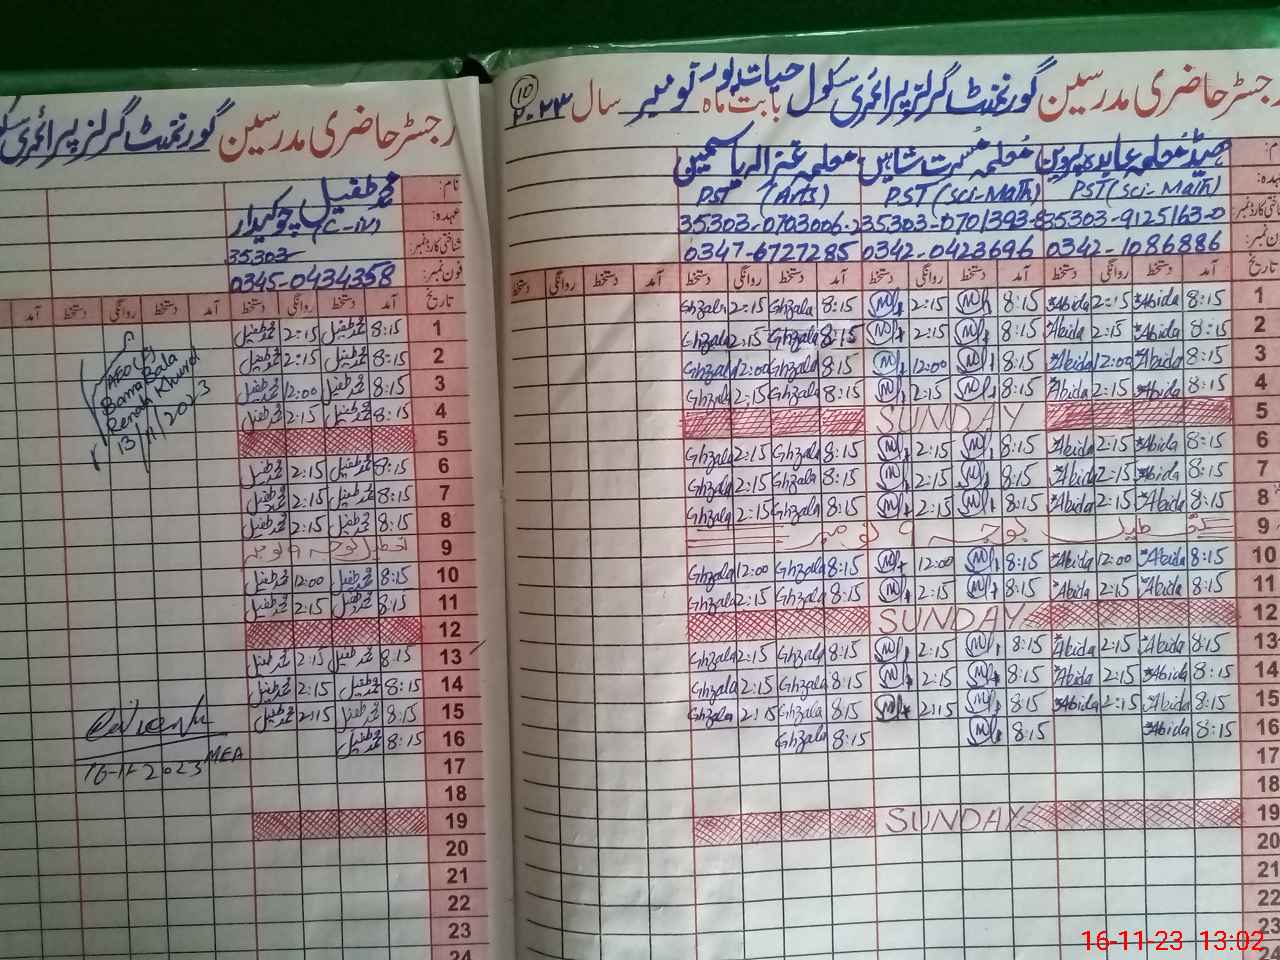 رجسٹر حاضری مدرسین گورنمنٹ گرلز پرائمری سکول حیات پور بابت ماہ نومبر سال ۲۰۲۳
10
ہیڈ معلمہ عابدہ پروین معلمہ مسرت شاہین معلمہ غزالہ یاسمین
PST (Arts) PST (Sci-Math) PST (Sci-Math)
35303-0703006- 35303-0701393- 35303-9125163-0
0347-6727285 0342-0423696 0342-1086886
تاریخ آمد دستخط روانگی دستخط آمد دستخط روانگی دستخط آمد دستخط روانگی دستخط آمد دستخط روانگی دستخط
Ghzala 2:15 Ghzala 8:15 2:15 8:15 Abida 2:15 Abida 8:15 1
Ghzala 2:15 Ghzala 8:15 2:15 8:15 Abida 2:15 Abida 8:15 2
Ghzala 12:00 Ghzala 8:15 12:00 8:15 Abida 12:00 Abida 8:15 3
Ghzala 2:15 Ghzala 8:15 2:15 8:15 Abida 2:15 Abida 8:15 4
SUNDAY 5
Ghzala 2:15 Ghzala 8:15 2:15 8:15 Abida 2:15 Abida 8:15 6
Ghzala 2:15 Ghzala 8:15 2:15 8:15 Abida 2:15 Abida 8:15 7
Ghzala 2:15 Ghzala 8:15 2:15 8:15 Abida 2:15 Abida 8:15 8
تعطیل بوجہ 9 نومبر 9
Ghzala 12:00 Ghzala 8:15 12:00 8:15 Abida 12:00 Abida 8:15 10
Ghzala 2:15 Ghzala 8:15 2:15 8:15 Abida 2:15 Abida 8:15 11
SUNDAY 12
Ghzala 2:15 Ghzala 8:15 2:15 8:15 Abida 2:15 Abida 8:15 13
Ghzala 2:15 Ghzala 8:15 2:15 8:15 Abida 2:15 Abida 8:15 14
Ghzala 2:15 Ghzala 8:15 2:15 8:15 Abida 2:15 Abida 8:15 15
Ghzala 8:15 8:15 Abida 8:15 16
17
18
SUNDAY 19
20
21
22
23
24
رجسٹر حاضری مدرسین گورنمنٹ گرلز پرائمری
نام: محمد طفیل
عہدہ: چوکیدار (C-iv)
شناختی کارڈ نمبر: 35303
فون نمبر: 0345-0434358
تاریخ آمد دستخط روانگی دستخط آمد دستخط روانگی دستخط آمد
محمد طفیل 2:15 محمد طفیل 8:15 1
محمد طفیل 2:15 محمد طفیل 8:15 2
محمد طفیل 12:00 محمد طفیل 8:15 3
محمد طفیل 2:15 محمد طفیل 8:15 4
5
محمد طفیل 2:15 محمد طفیل 8:15 6
محمد طفیل 2:15 محمد طفیل 8:15 7
محمد طفیل 2:15 محمد طفیل 8:15 8
تعطیل بوجہ 9 نومبر 9
محمد طفیل 12:00 محمد طفیل 8:15 10
محمد طفیل 2:15 محمد طفیل 8:15 11
12
محمد طفیل 2:15 محمد طفیل 8:15 13
محمد طفیل 2:15 محمد طفیل 8:15 14
محمد طفیل 2:15 محمد طفیل 8:15 15
محمد طفیل 8:15 16
17
18
19
20
21
22
23
24
AEO
Bama Bala
Renala Khurd
13/11/2023
MEA
16-11-2023
16-11-23 13:02